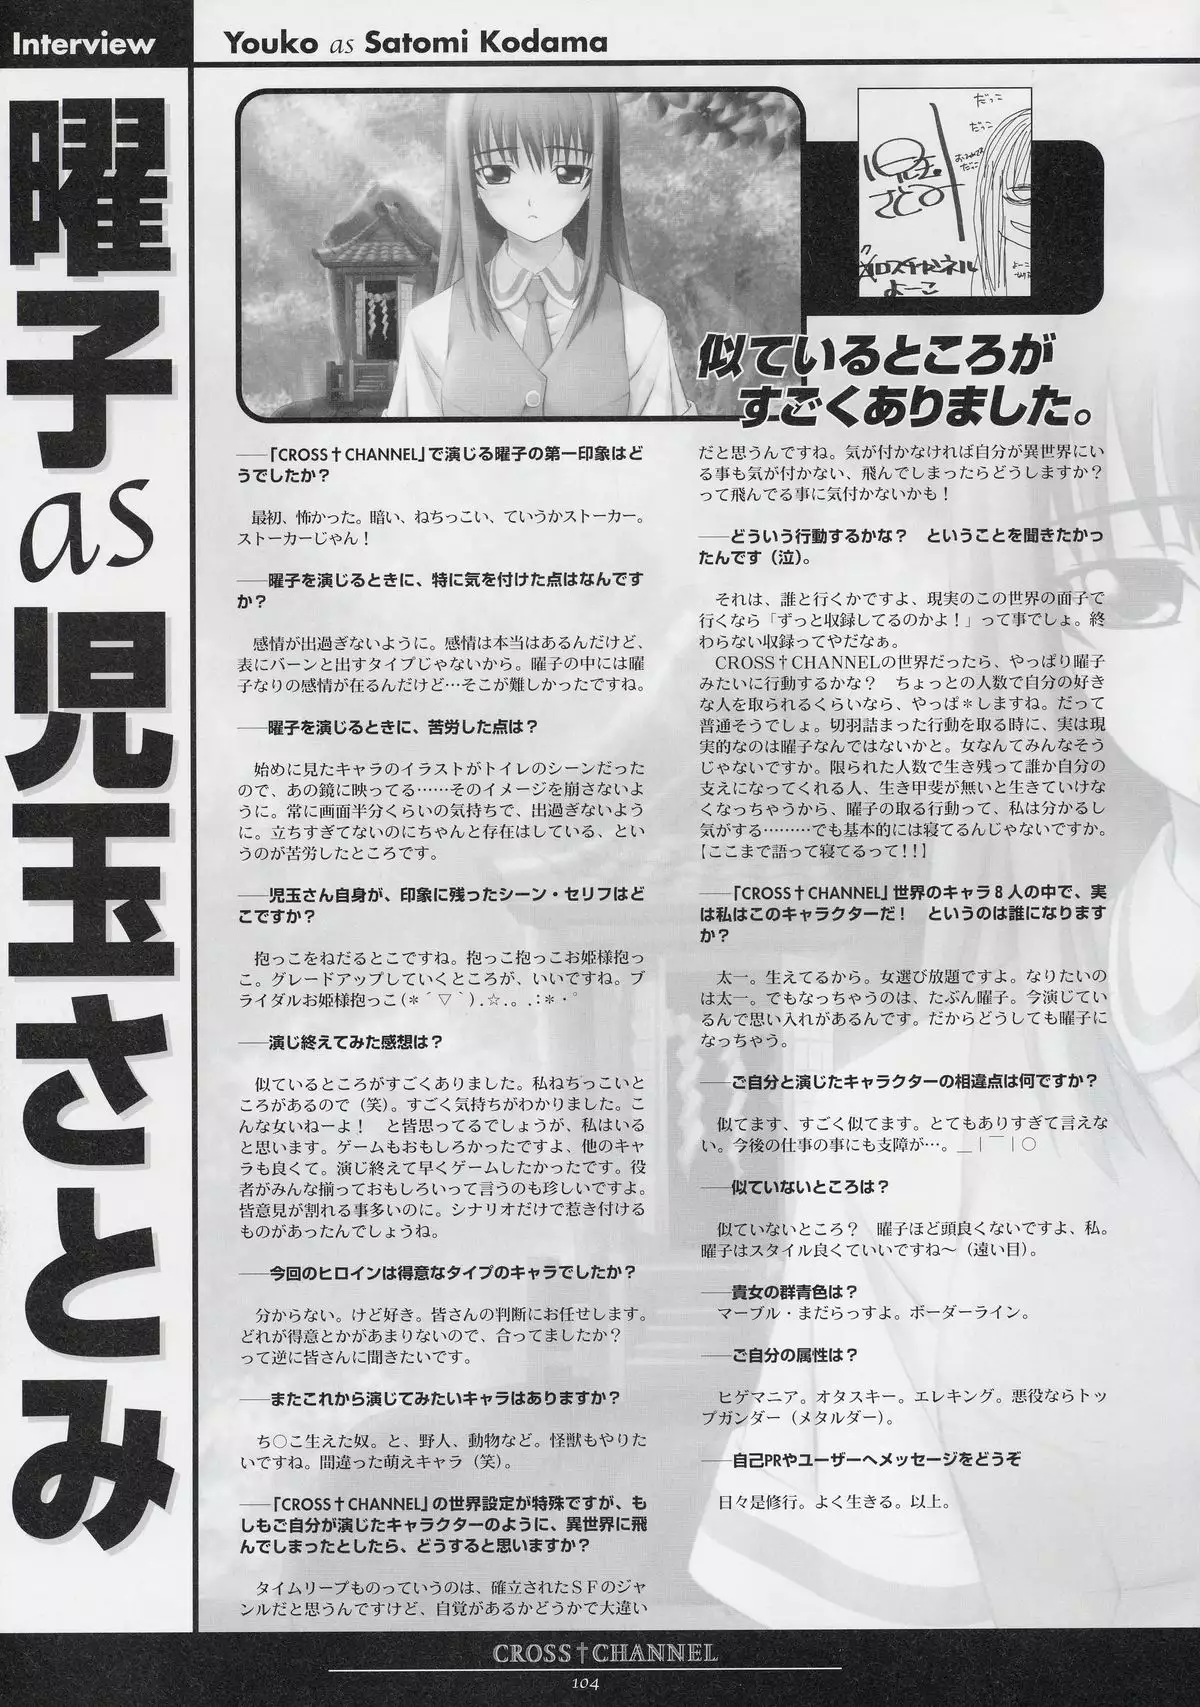 Interview
Youko as Satomi Kodama
曜子as児玉さとみ
だっこ
だっこ
だっこ
児玉
さとみ
クロスチャンネル
よーこ
よーこ
似ているところが
すごくありました。
──「CROSS†CHANNEL」で演じる曜子の第一印象はど
うでしたか？
最初、怖かった。暗い、ねちっこい、ていうかストーカー。
ストーカーじゃん！
──曜子を演じるときに、特に気を付けた点はなんです
か？
感情が出過ぎないように。感情は本当はあるんだけど、
表にバーンと出すタイプじゃないから。曜子の中には曜
子なりの感情が在るんだけど…そこが難しかったですね。
──曜子を演じるときに、苦労した点は？
始めに見たキャラのイラストがトイレのシーンだった
ので、あの鏡に映ってる……そのイメージを崩さないよ
うに。常に画面半分くらいの気持ちで、出過ぎないよう
に。立ちすぎてないのにちゃんと存在はしている、とい
うのが苦労したところです。
──児玉さん自身が、印象に残ったシーン・セリフはど
こですか？
抱っこをねだるとこですね。抱っこ抱っこお姫様抱っ
こ。グレードアップしていくところが、いいですね。ブ
ライダルお姫様抱っこ(＊´▽｀).☆.。.:＊・゜
──演じ終えてみた感想は？
似ているところがすごくありました。私ねちっこいと
ころがあるので（笑）。すごく気持ちがわかりました。こ
んな女いねーよ！　と皆思ってるでしょうが、私はいる
と思います。ゲームもおもしろかったですよ、他のキャ
ラも良くて。演じ終えて早くゲームしたかったです。役
者がみんな揃っておもしろいって言うのも珍しいですよ。
皆意見が割れる事多いのに。シナリオだけで惹き付ける
ものがあったんでしょうね。
──今回のヒロインは得意なタイプのキャラでしたか？
分からない。けど好き。皆さんの判断にお任せします。
どれが得意とかがあまりないので、合ってましたか？
って逆に皆さんに聞きたいです。
──またこれから演じてみたいキャラはありますか？
ち○こ生えた奴。と、野人、動物など。怪獣もやりた
いですね。間違った萌えキャラ（笑）。
──「CROSS†CHANNEL」の世界設定が特殊ですが、も
しもご自分が演じたキャラクターのように、異世界に飛
んでしまったとしたら、どうすると思いますか？
タイムリープものっていうのは、確立されたＳＦのジャ
ンルだと思うんですけど、自覚があるかどうかで大違い
だと思うんですね。気が付かなければ自分が異世界にい
る事も気が付かない、飛んでしまったらどうしますか？
って飛んでる事に気付かないかも！
──どういう行動するかな？　ということを聞きたかっ
たんです（泣）。
それは、誰と行くかですよ、現実のこの世界の面子で
行くなら「ずっと収録してるのかよ！」って事でしょ。終
わらない収録ってやだなぁ。
CROSS†CHANNELの世界だったら、やっぱり曜子
みたいに行動するかな？　ちょっとの人数で自分の好き
な人を取られるくらいなら、やっぱ＊しますね。だって
普通そうでしょ。切羽詰まった行動を取る時に、実は現
実的なのは曜子なんではないかと。女なんてみんなそう
じゃないですか。限られた人数で生き残って誰か自分の
支えになってくれる人、生き甲斐が無いと生きていけな
くなっちゃうから、曜子の取る行動って、私は分かるし
気がする………でも基本的には寝てるんじゃないですか。
【ここまで語って寝てるって！！】
──「CROSS†CHANNEL」世界のキャラ８人の中で、実
は私はこのキャラクターだ！　というのは誰になります
か？
太一。生えてるから。女選び放題ですよ。なりたいの
は太一。でもなっちゃうのは、たぶん曜子。今演じてい
るんで思い入れがあるんです。だからどうしても曜子に
なっちゃう。
──ご自分と演じたキャラクターの相違点は何ですか？
似てます、すごく似てます。とてもありすぎて言えな
い。今後の仕事の事にも支障が…。＿|￣|○
──似ていないところは？
似ていないところ？　曜子ほど頭良くないですよ、私。
曜子はスタイル良くていいですね〜（遠い目）。
──貴女の群青色は？
マーブル・まだらっすよ。ボーダーライン。
──ご自分の属性は？
ヒゲマニア。オタスキー。エレキング。悪役ならトッ
プガンダー（メタルダー）。
──自己PRやユーザーへメッセージをどうぞ
日々是修行。よく生きる。以上。
CROSS†CHANNEL
104